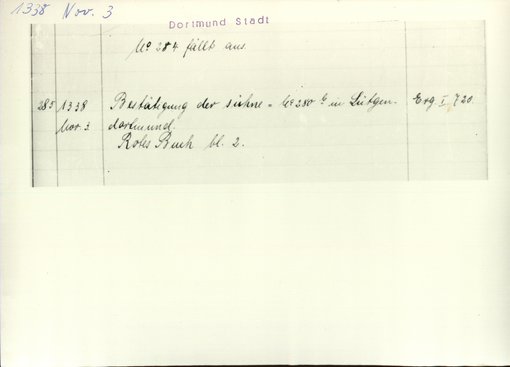 1338 Nov. 3
Dortmund Stadt
No 284 fällt aus
285 1338 Bestätigung der sühne = No 280 b in Lütgen- Erg I, 720.
Nov. 3. dortmund.
Rotes Buch bl. 2.